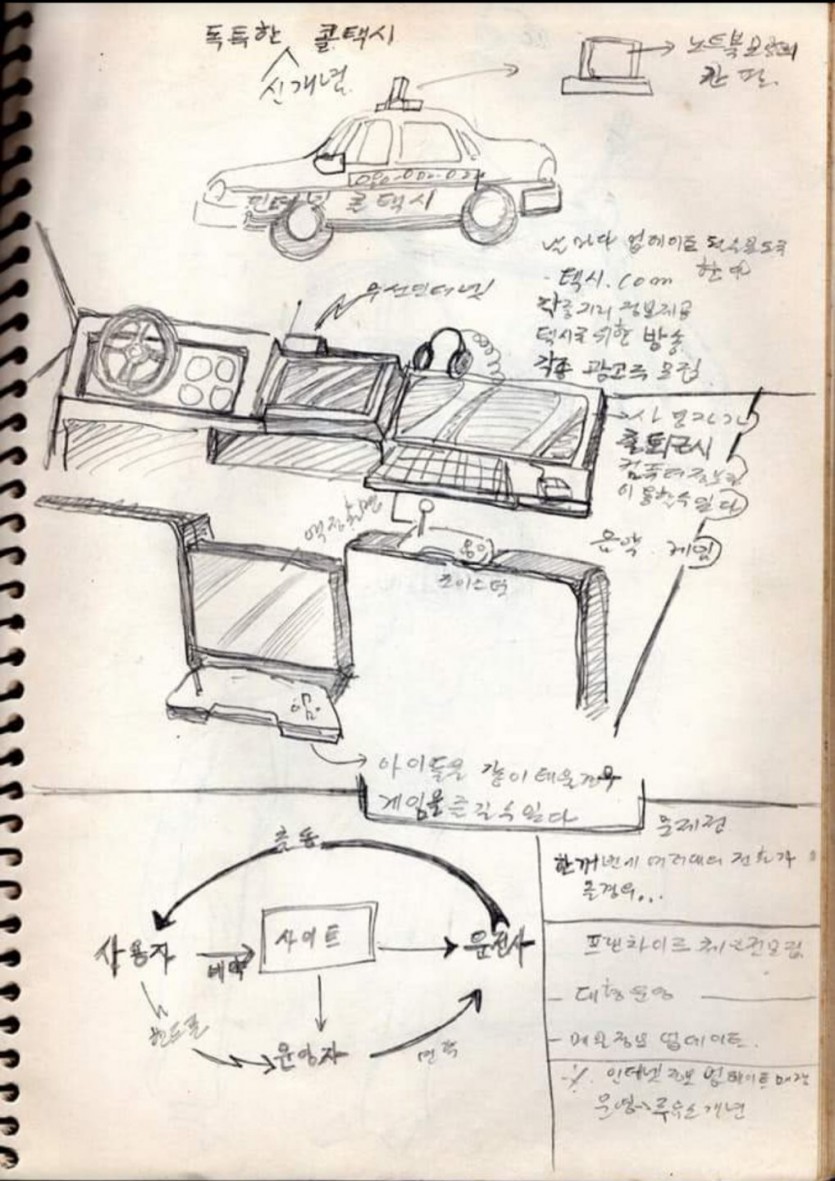 독특한 콜택시
신개념
노트북 모양의
간판
000-000-0
인터넷 콜택시
날마다 업데이트
택시.com
무선인터넷
각종거리 정보제공
택시를 위한 방송
각종 광고주 모집
출퇴근시
컴퓨터
이용할수있다
음악. 게임
액정화면
조이스틱
아이들을 같이 태울경우
게임을 즐길수있다
문제점
출동
한꺼번에 여러대의 전화가
올경우...
사용자
사이트
운전사
예약
핸드폰
운영자
연락
대형운영
매일정보 업데이트.
인터넷 정보 업데이트 매장
운영→주유소개념